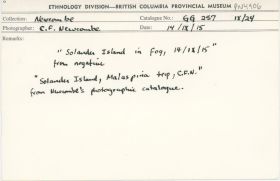 ETHNOLOGY DIVISION—BRITISH COLUMBIA PROVINCIAL MUSEUM PN4906
Collection: Newcombe Catalogue No.: GG 257 IX/24
Photographer: C.F. Newcombe Date: 14/IX/15
Remarks:
"Solander Island in fog, 14/IX/15"
from negative
"Solander Island, Malaspina trip, C.F.N."
from Newcombe's photographic catalogue.